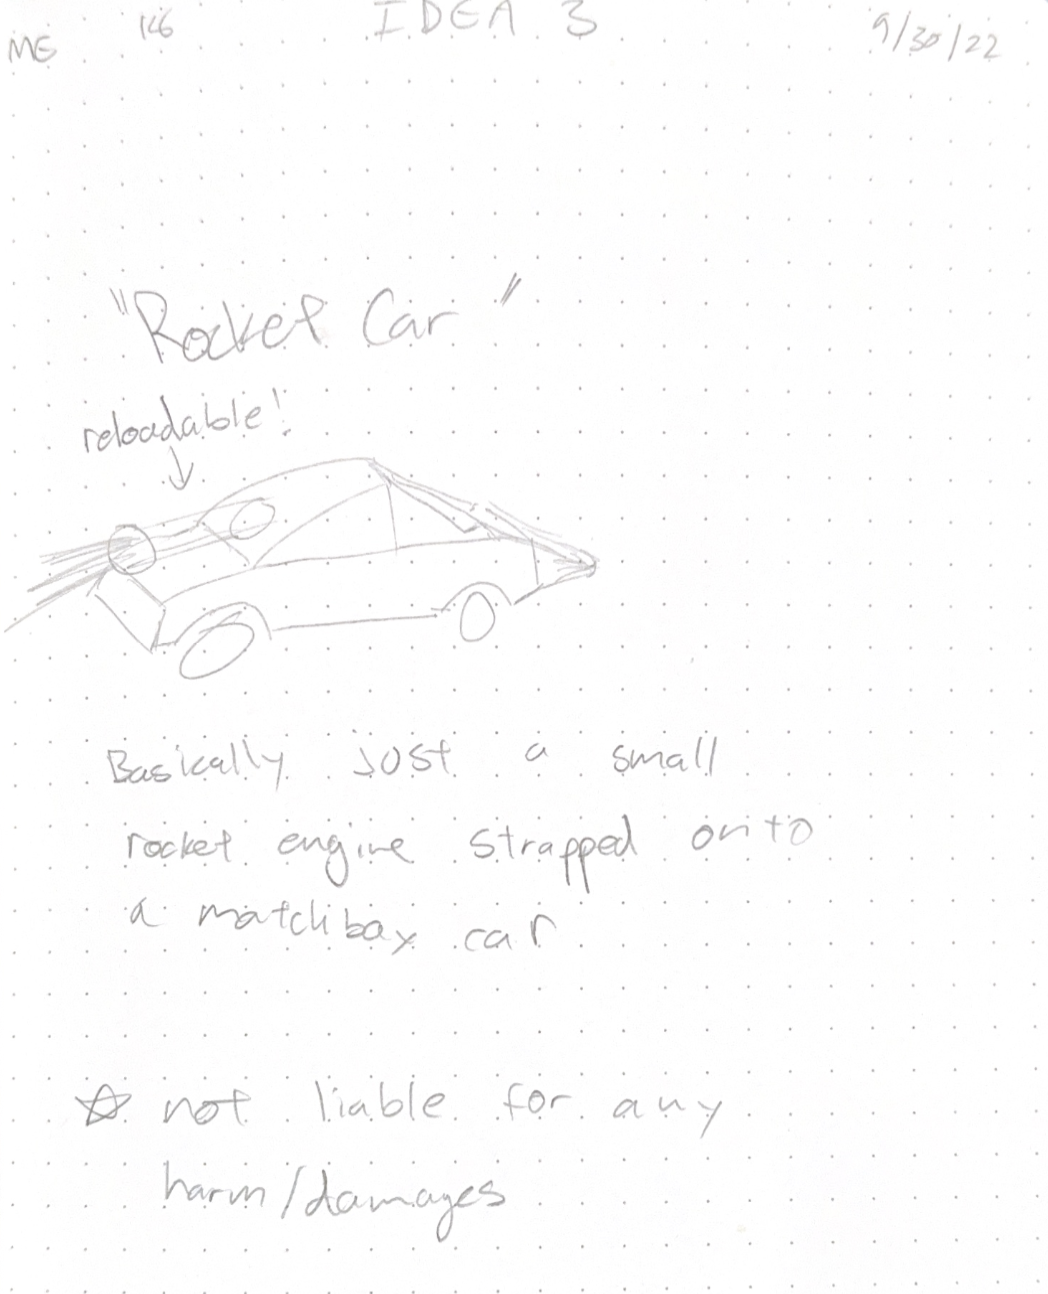 ME 146 IDEA 3 9/30/22
"Rocket Car"
reloadable!
Basically just a small
rocket engine strapped onto
a matchbox car
☆ not liable for any
harm/damages